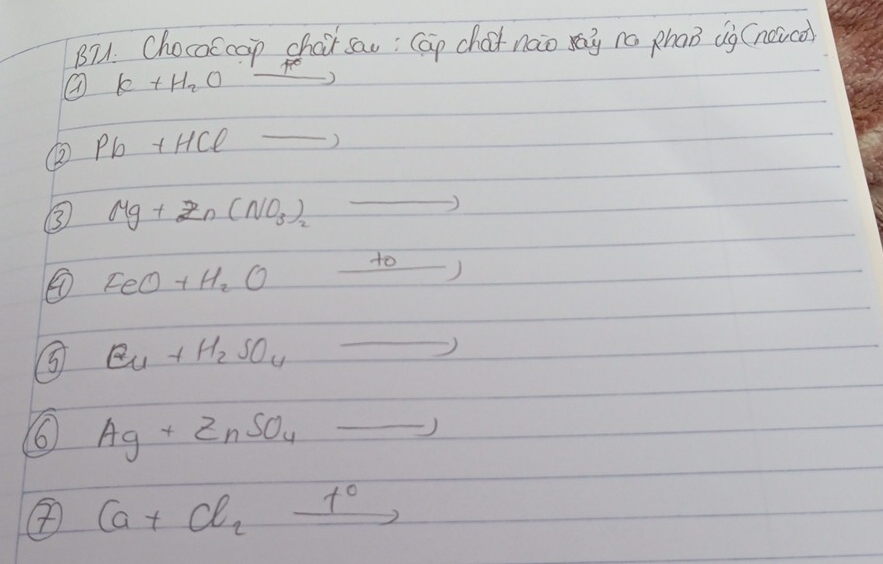 BT1. Cho các cặp chất sau: Cặp chất nào xảy ra phản ứg (nếu có)
① K + H₂O —t°→
② Pb + HCl →
③ Mg + Zn(NO₃)₂ →
④ FeO + H₂O —to→
⑤ Cu + H₂SO₄ →
⑥ Ag + ZnSO₄ →
⑦ Ca + Cl₂ —t°→